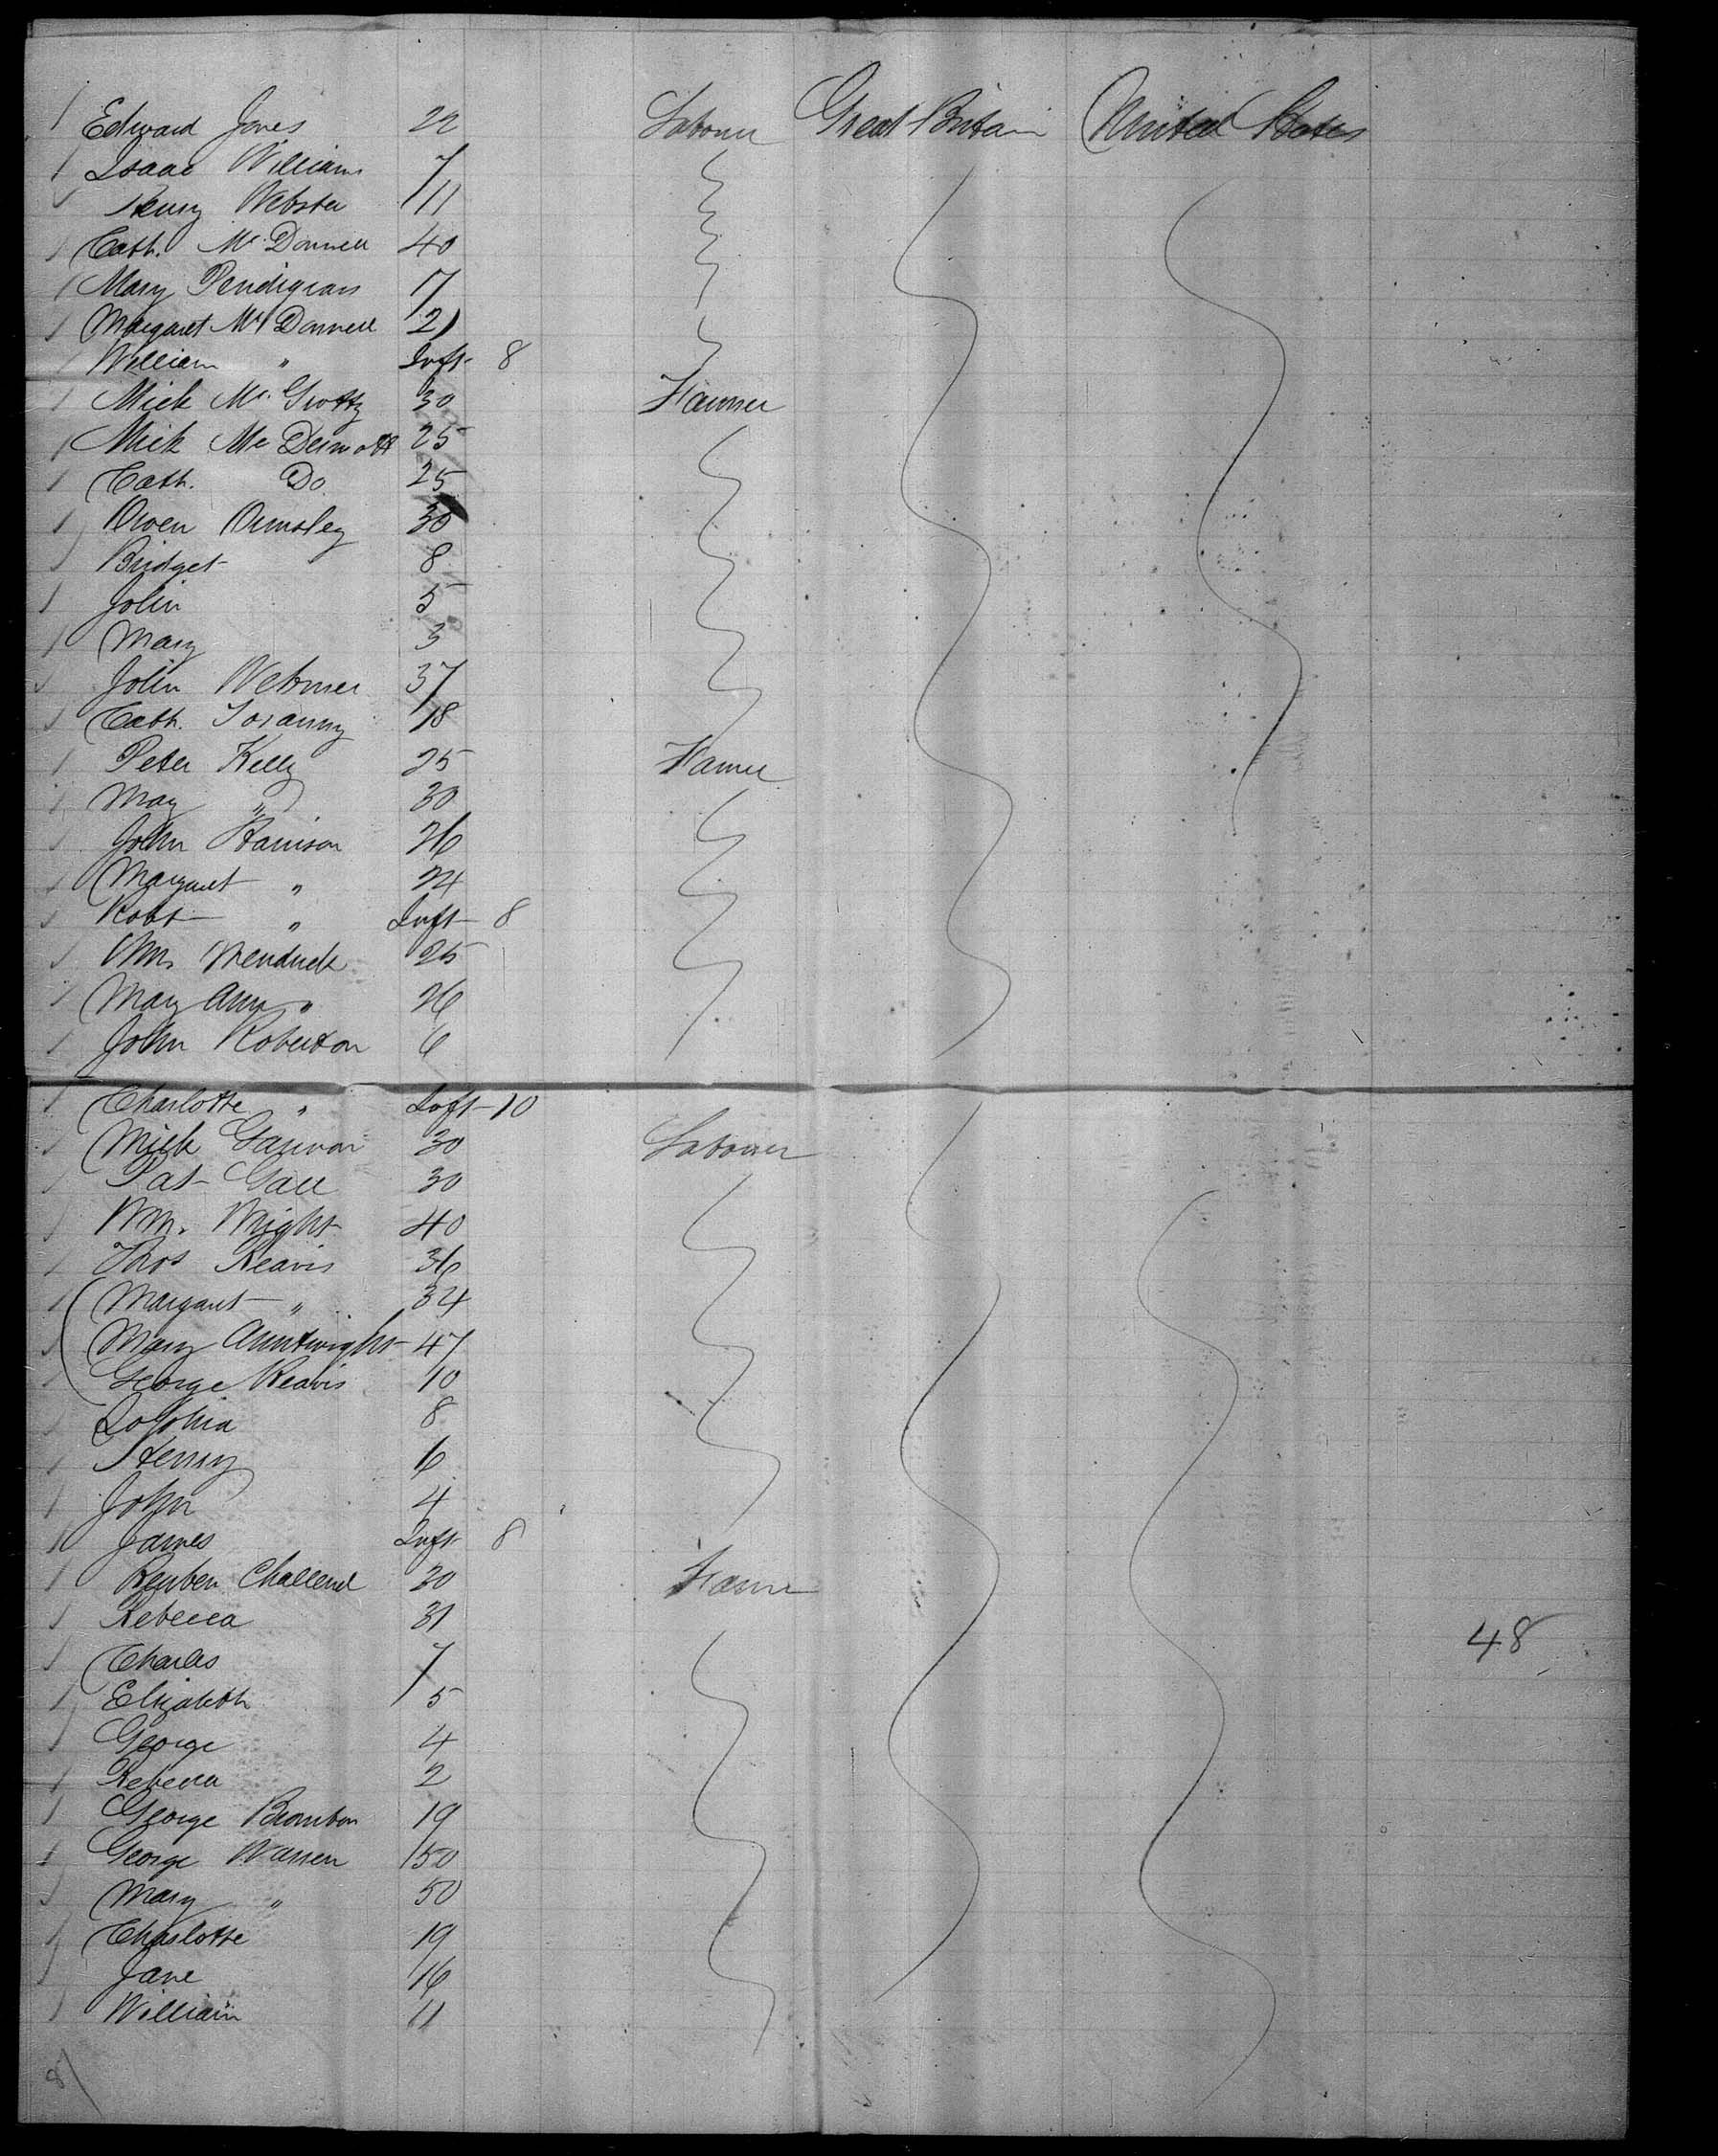 Edward Jones 22 Labourer Great Britain United States
Isaac Williams 7
Henry Webster 11
Cath. McDonnell 40
Mary 17
Margaret McDonnell 21
William " Inft 8
Mick Mc. Grotty 30 Farmer
Mick Mc Dermott 25
Cath. Do 25
Owen Ormsley 30
Bridget 8
John 5
Mary 3
John 37
Cath. 18
Peter Kelly 25 Farmer
May " 30
John Harrison 26
Margaret " 24
Robt " Inft 8
Wm. 25
May Ann " 26
John Roberton 6
Charlotte " Inft 10
Mick Gannon 30 Labourer
Pat Gall 30
Wm. Wright 40
Thos Reavis 36
Margaret " 34
Mary Ann Wright 47
George Reavis 10
Sophia 8
Henry 6
John 4
James Inft 8
Reuben Challend 30 Farmer
Rebecca 31
Charles 7
48
Elizabeth 5
George 4
Rebecca 2
George Brambon 19
George Warren 50
Mary " 50
Charlotte 19
Jane 16
William 11